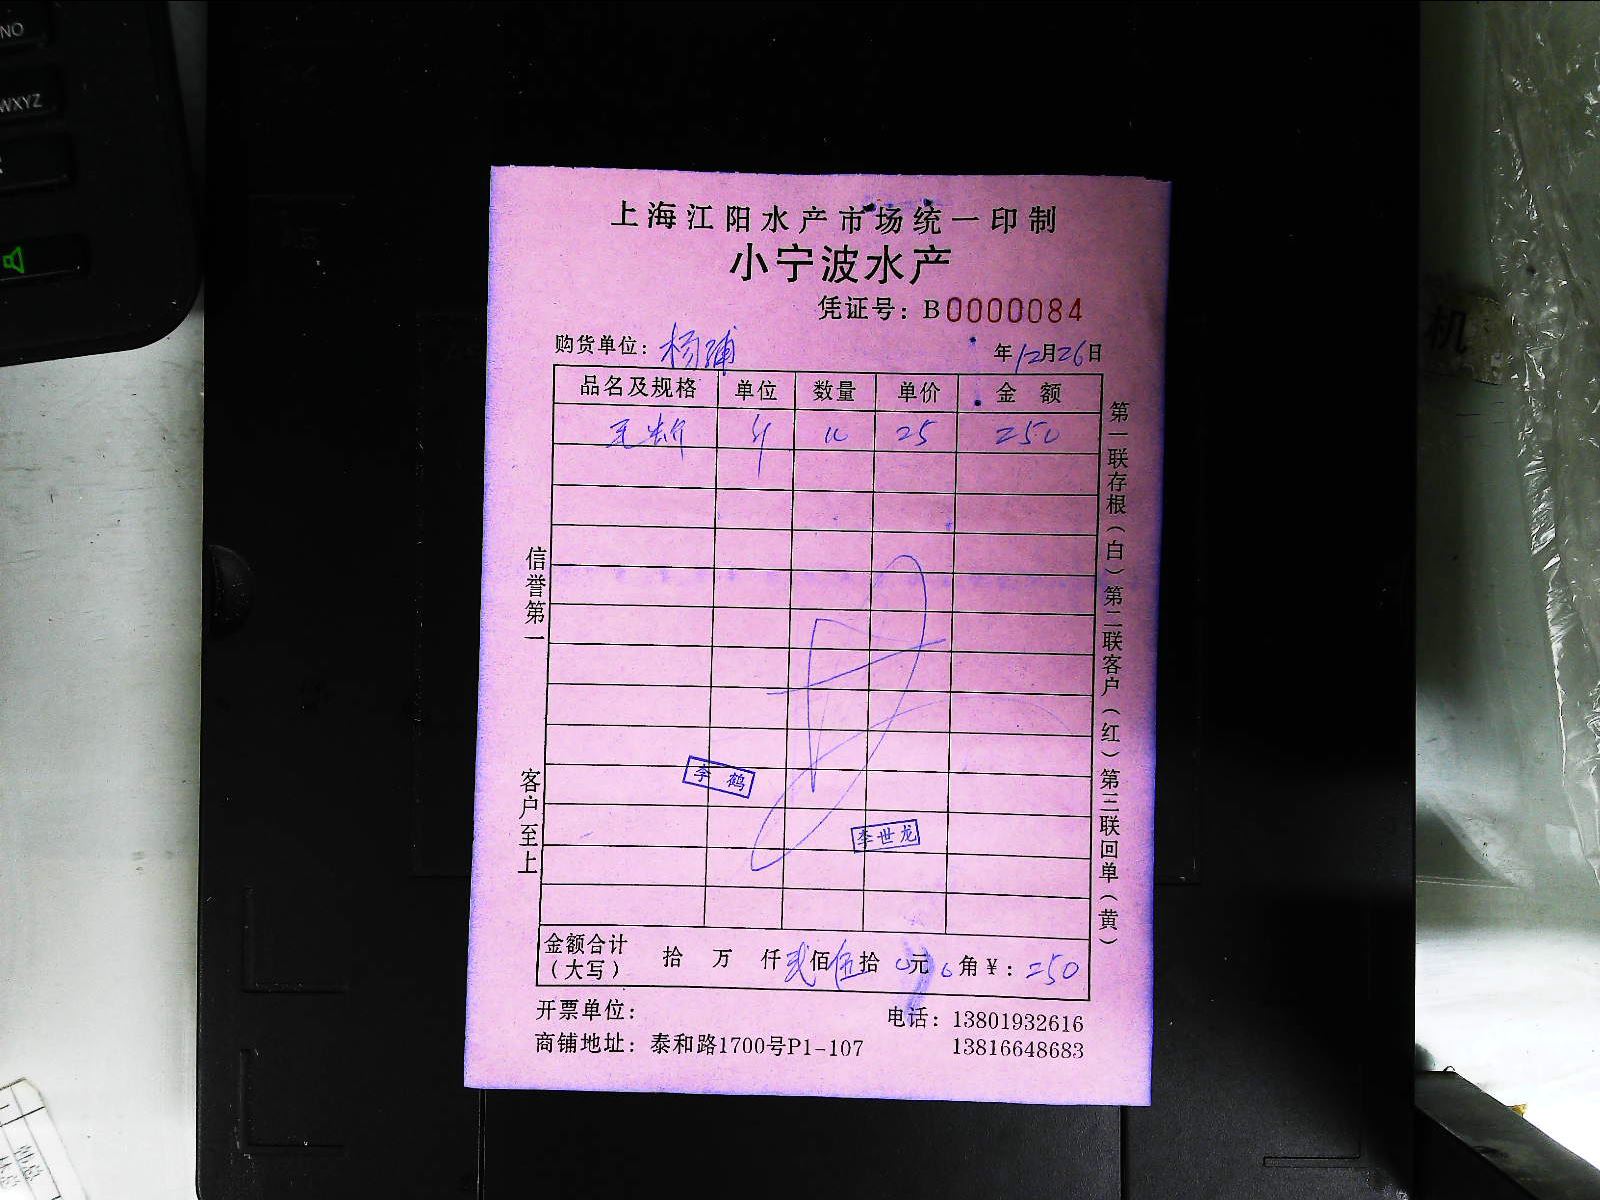 NO
WXYZ
上海江阳水产市场统一印制
小宁波水产
凭证号：B0000084
购货单位：杨浦 年12月26日
品名及规格 单位 数量 单价 金额
斤 10 25 250
第一联存根（白）第二联客户（红）第三联回单（黄）
信誉第一
客户至上
李鹤
李世龙
金额合计（大写） 拾 万 仟贰佰伍拾0元0角￥：250
开票单位：
电话：13801932616
商铺地址：泰和路1700号P1-107
13816648683
机